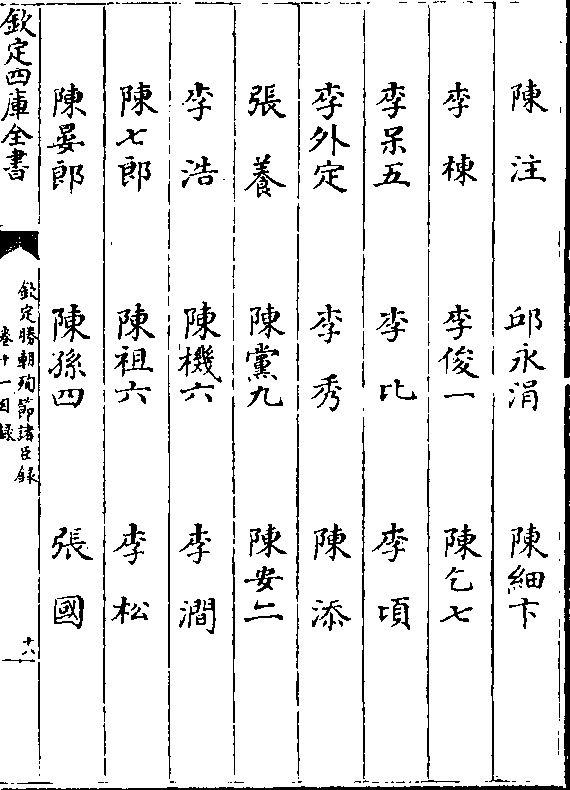 陳注 邱永涓 陳細卞
李棟 李俊一 陳乞七
李呆五 李比 李頃
李外定 李秀 陳添
張養 陳黨九 陳安二
李浩 陳機六 李澗
陳七郎 陳祖六 李松
陳晏郎 陳孫四 張國
欽定四庫全書
欽定勝朝殉節諸臣錄
卷十一目錄
十八